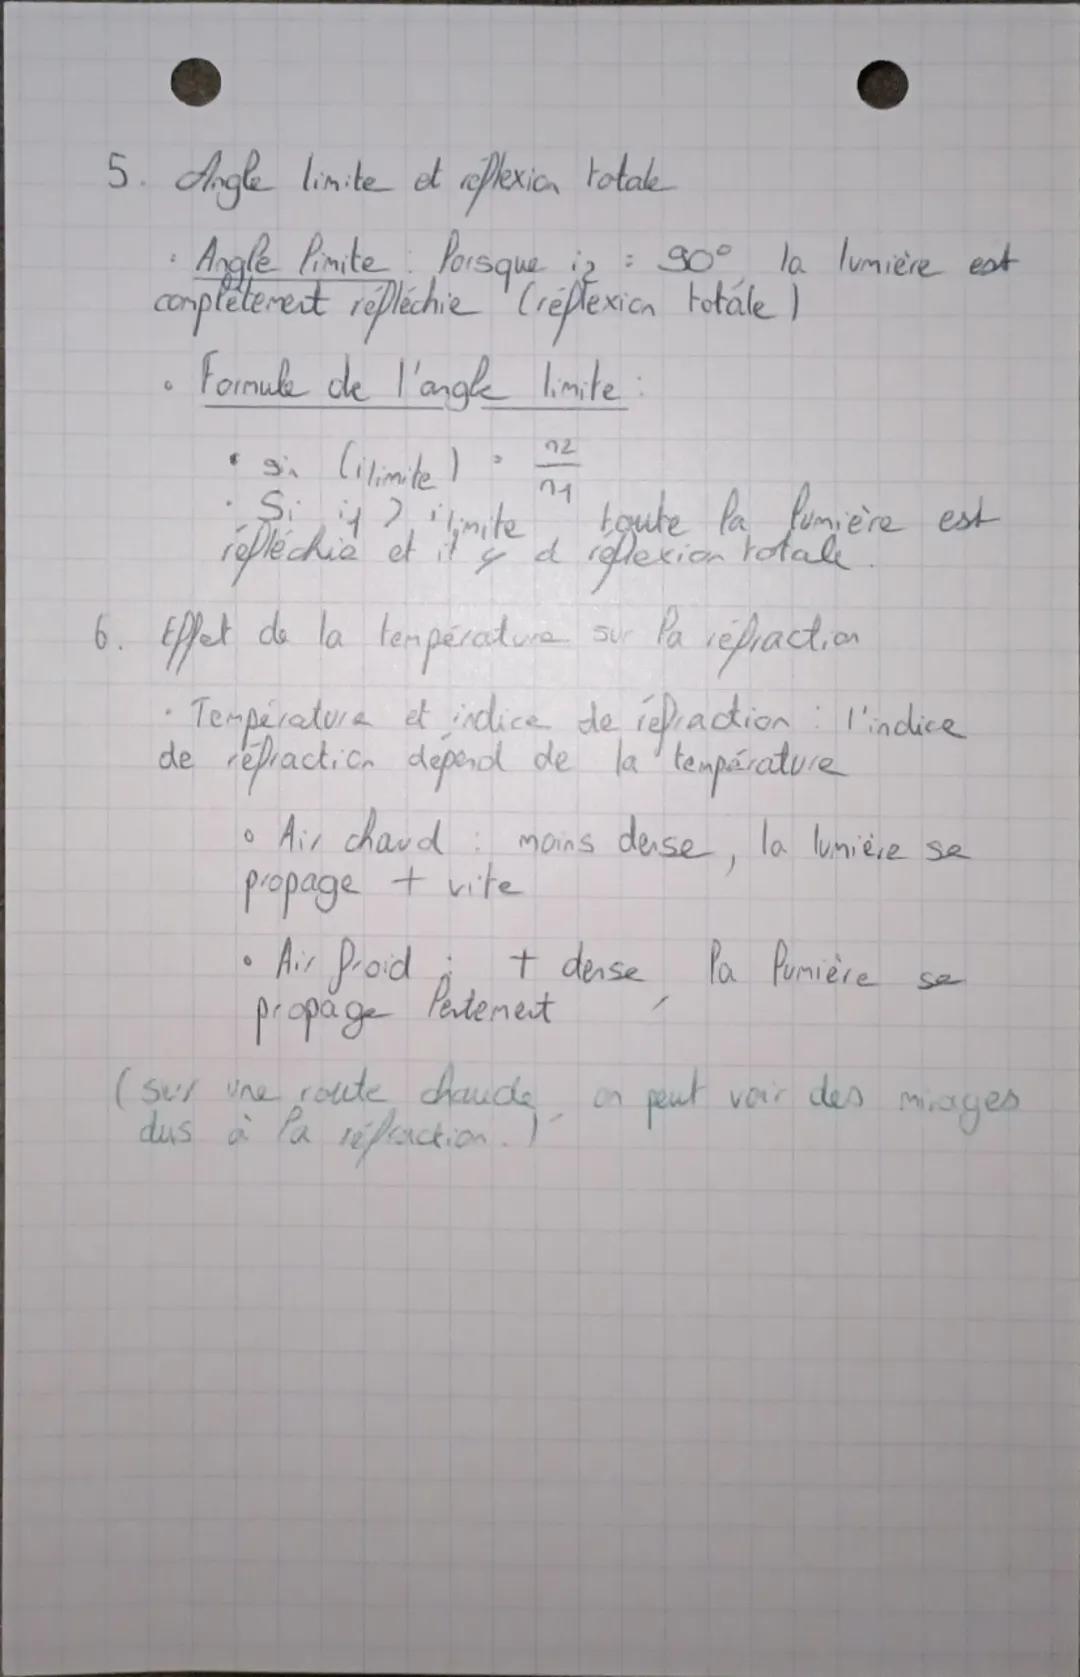 5. Angle limite et réflexion totale
• Angle limite : lorsque i2 = 90°, la lumière est
complètement réfléchie (réflexion totale)
• Formule de l'angle limite :
• sin (ilimite) = n2/n1
• Si i1 > ilimite, toute la lumière est
réfléchie et il y a réflexion totale.
6. Effet de la température sur la réfraction
• Température et indice de réfraction : l'indice
de réfraction dépend de la température
• Air chaud : moins dense, la lumière se
propage + vite
• Air froid : + dense, la lumière se
propage lentement
(sur une route chaude, on peut voir des mirages
dus à la réfraction.)